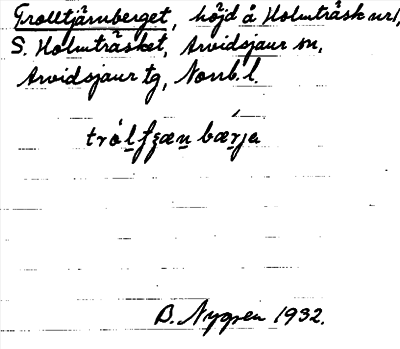 Trolltjärnberget, höjd å Holmträsk nr 1,
S. Holmträsket, Arvidsjaur sn,
Arvidsjaur tg, Norrb. l.
B. Nygren 1932.